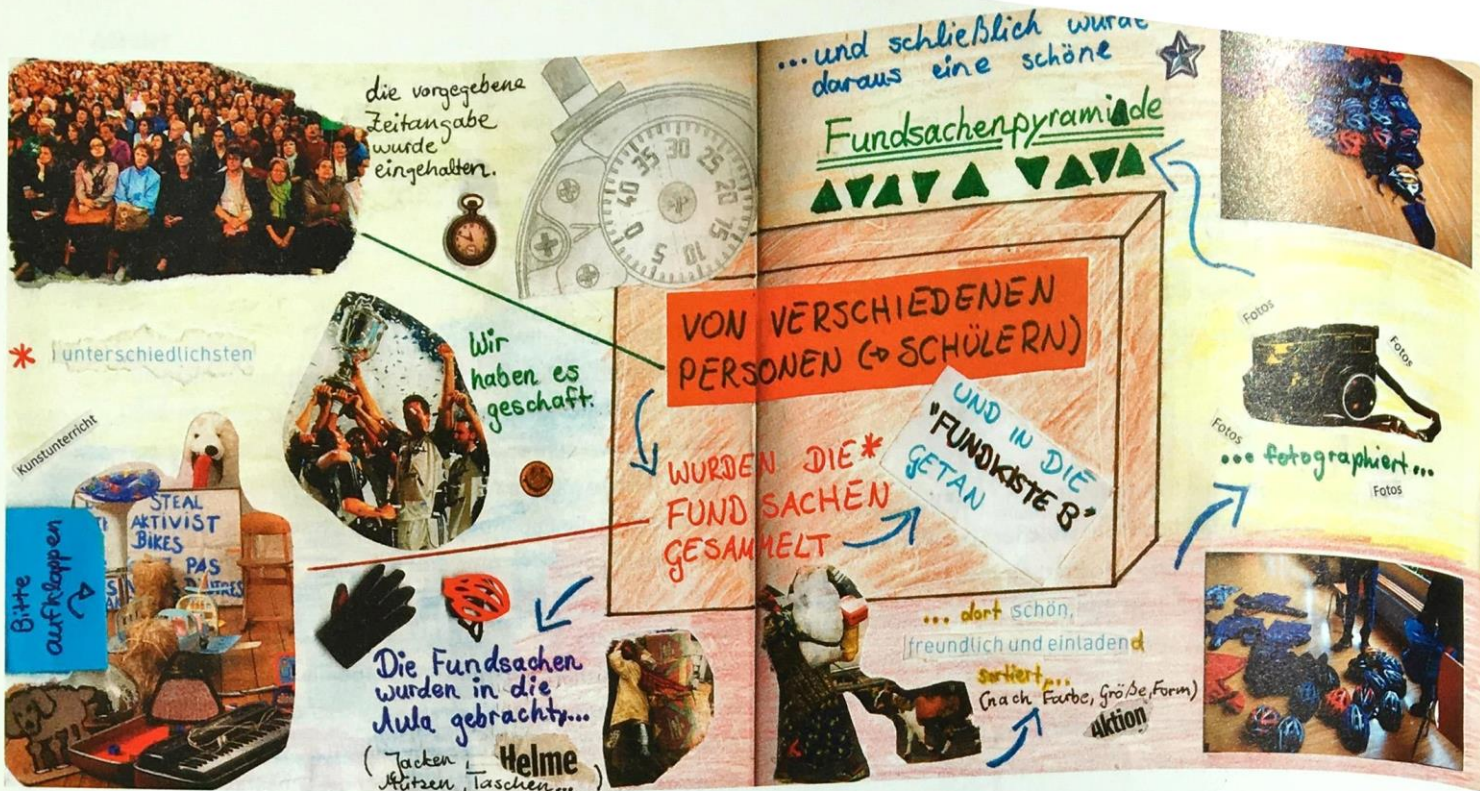 die vorgegebene
Zeitangabe
wurde
eingehalten.
40 35 30 25 20 15 10 5 0
...und schließlich wurde
daraus eine schöne
Fundsachenpyramide
* unterschiedlichsten
Kunstunterricht
Wir
haben es
geschaft.
VON VERSCHIEDENEN
PERSONEN (→ SCHÜLERN)
WURDEN DIE*
FUND SACHEN
GESAMMELT
UND IN DIE
"FUNDKISTE B"
GETAN
Fotos
Fotos
Fotos
... fotographiert...
Fotos
Bitte
aufklappen
STEAL
AKTIVIST
BIKES
PAS
Die Fundsachen
wurden in die
Aula gebracht,...
(Jacken, Helme
Mützen, Taschen...)
... dort schön,
freundlich und einladend
sortiert,...
(nach Farbe, Größe, Form)
Aktion